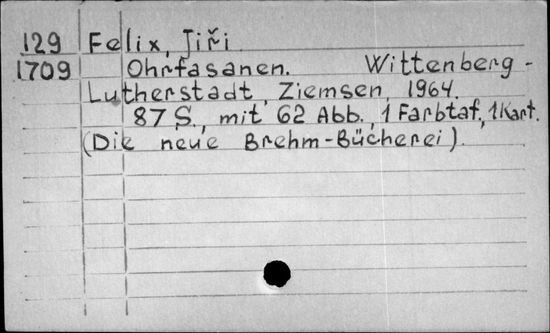 129 Felix, Jiří
1709 Ohrfasanen. Wittenberg-
Lutherstadt, Ziemsen, 1964.
87 S., mit 62 Abb., 1 Farbtaf., 1 Kart.
(Die neue Brehm-Bücherei).